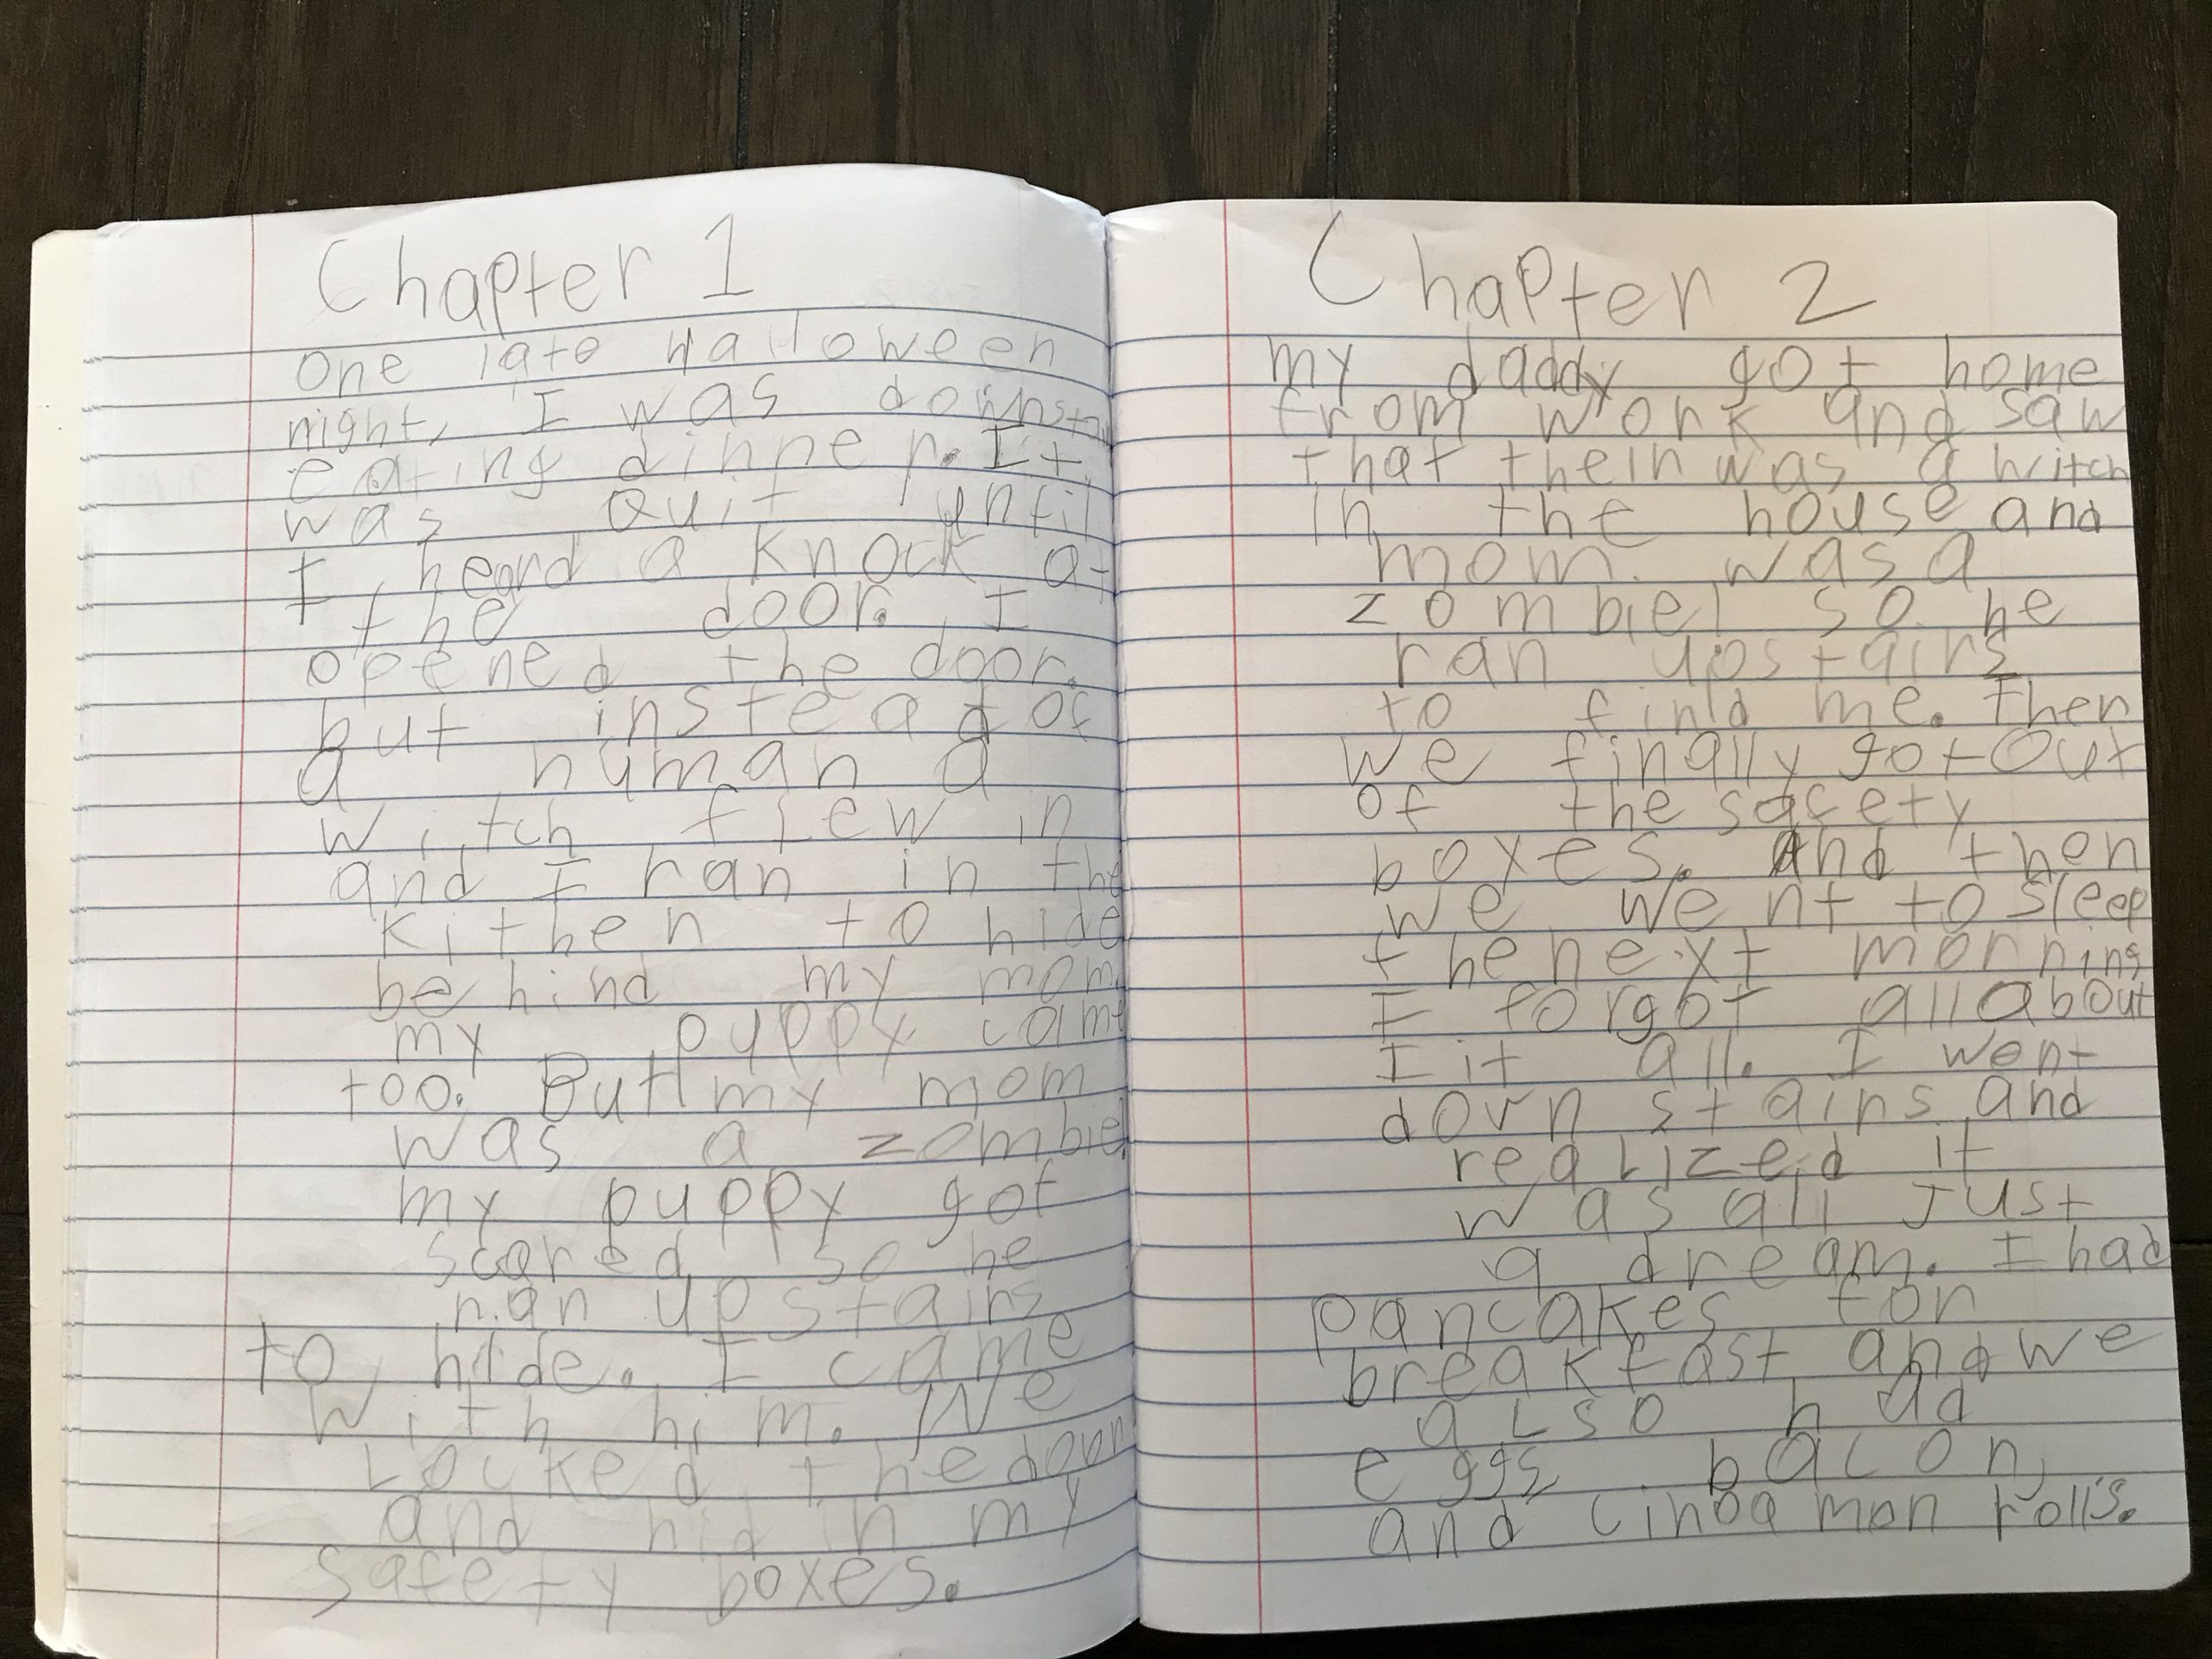 Chapter 1
One late Halloween
night, I was downstai
eating dinner. It
was Quit until
I heard a knock at
the door. I
opened the door.
but instead of
a human a
witch flew in
and I ran in the
kithen to hide
behind my mom.
my puppy came
too. But my mom
was a zombie!
my puppy got
scared so he
ran upstairs
to hide. I came
with him. We
Locked the door
and hid in my
safety boxes.
Chapter 2
my daddy got home
from work and saw
that their was a witch
in the house and
mom was a
zombie! so he
ran upstairs
to find me. Then
we finally got Out
of the safety
boxes. And then
we went to sleep
the next morning
I forgot all about
I it all. I went
down stairs and
realized it
was all Just
a dream. I had
pancakes for
breakfast and we
aLso had
eggs bacon,
and cinoamon rolls.